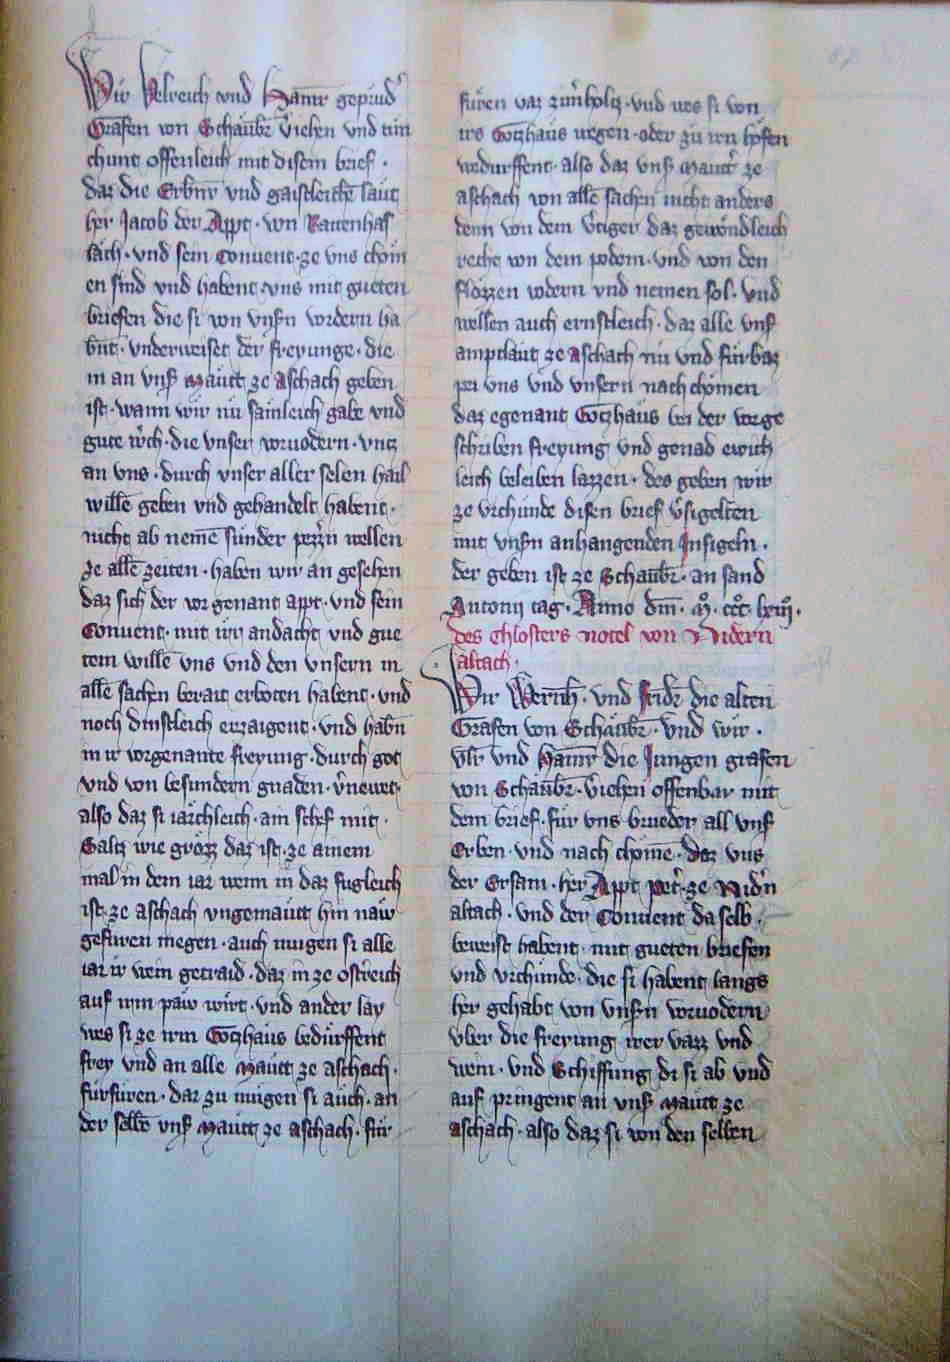 Wir Ulreich vnd Hainr gepruder
Grafen von Schaunbr veriehen vnd tun
chunt offenleich mit disem brief ·
daz die Erbnn vnd gaistleiche laut
her Jacob der Appt · von Rattenhas
lach · vnd sein Conuent · ze vns chom
en sind vnd habent vns mit gueten
briefen die si von vnsern vordern ha
bent · vnderweiset der freyunge · die
in an vnser Mautt ze Aschach geben
ist · wann wir nu sainleich gabe vnd
gute werch · die vnser voruodern · vntz
an vns · durch vnser aller selen hail
wille geben vnd gehandelt habent ·
nicht ab neme sunder pezzern wellen
ze alle zeiten · haben wir an gesehen
daz sich der vor genant appt · vnd sein
Conuent · mit irr andacht vnd gue
tem wille vns vnd den vnsern in
alle sachen berait erboten habent · vnd
noch dinstleich erzaigent · vnd haben
in ir vorgenante freyung · durch got
vnd von besundern gnaden · verneuet ·
also daz si iarchleich · am schef mit ·
Saltz wie grozz daz ist · ze ainem
mal in dem iar wenn in daz fugleich
ist · ze aschach vngemautt hin naw
gefuren megen · auch mugen si alle
iar ir wein getraid · daz in ze osterreich
auf irm paw wirt · vnd ander lay
wes si ze irm Gotzhaus bedurffent
frey vnd an alle Mautt ze aschach ·
furfuren · dar zu mugen si auch · an
der selbe vnser Mautt ze aschach · fur
furen vaz zimerholtz · vnd wes si von
irs Gotzhaus wegen · oder zu irn hofen
wedurffent · also daz vnser Mautter ze
aschach von alle sachen nicht anders
denn von dem vertiger daz gewondleich
recht von dem podem · vnd von den
flozzen vodern vnd nemen sol · vnd
wellen auch ernstleich · daz alle vnser
amptlaut ze Aschach nu vnd furbaz
pei vns vnd vnsern nach chomen
daz egenant Gotzhaus bei der vorge
schriben freyung vnd genad ewich
leich beleiben lazzen · des geben wir
ze vrchunde disen brief versigelten
mit vnsern anhangenden Insigeln ·
der geben ist ze Schaunbr · an sand
Antonii tag · Anno dm · M · ccc · lxiii ·
des Chlosters notel von Nidern
altach ·
Wir Wernh · vnd fridr die alten
Grafen von Schaunbr · vnd wir ·
vlr vnd Hainr die Jungen grafen
von Schaunbr · veriehen offenbar mit
dem brief · fur vns brueder all vnser
Erben · vnd nach chome · daz vns
der Ersam · her Appt peter · ze Nidern
altach · vnd der Conuent da selb ·
beweist habent · mit gueten briefen
vnd vrchunde · die si habent langs
her gehabt von vnsern voruodern
vber die freyung irer vazz vnd
wein · vnd Schiffung di si ab vnd
auf pringent an vnser Mautt ze
aschach · also daz si von den selben